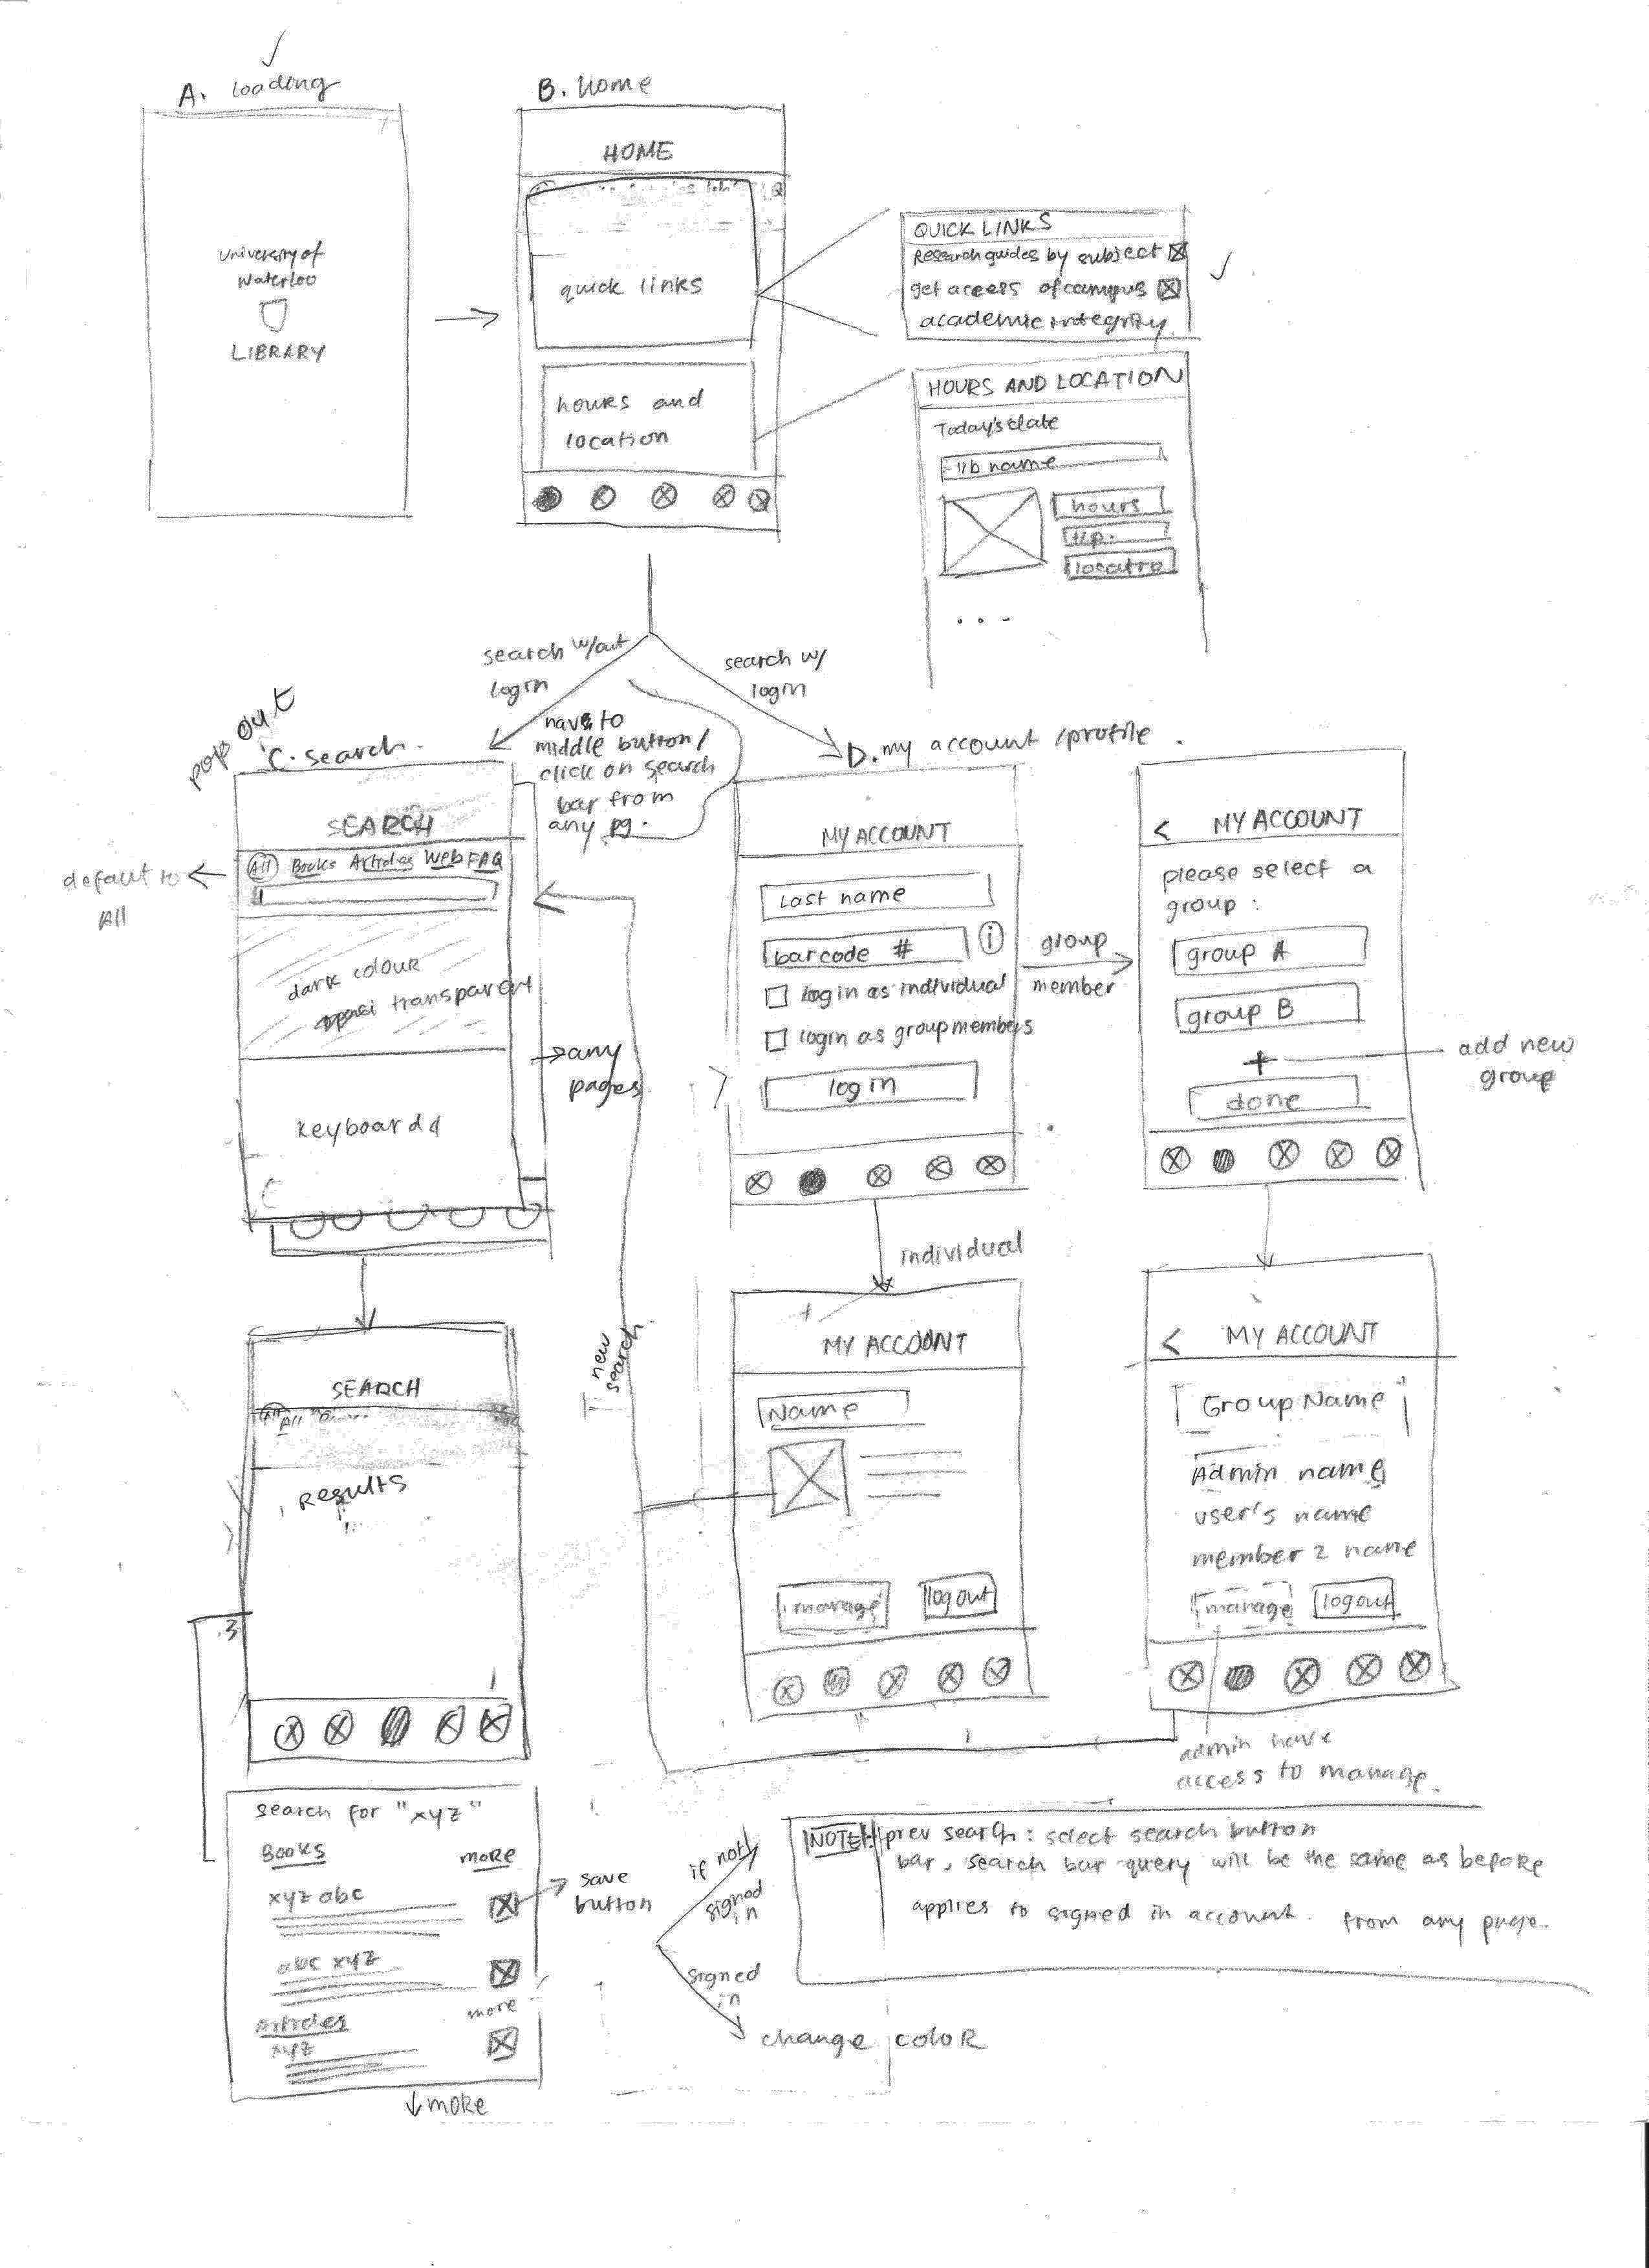 A. loading
University of
Waterloo
LIBRARY
B. Home
HOME
quick links
hours and
location
QUICK LINKS
Research guides by subject
get access of campus
academic integrity
HOURS AND LOCATION
Today's date
lib name
hours
location
...
search w/out
login
search w/
login
have to
middle button/
click on search
bar from
any pg.
pop out
C. search.
SEARCH
All Books Articles Web FAQ
default to
All
dark colour
transparent
keyboard
any
pages
D. my account /profile.
MY ACCOUNT
Last name
barcode #
i
login as individual
login as group members
login
group
member
< MY ACCOUNT
please select a
group :
group A
group B
+
add new
group
done
individual
new
search
SEARCH
All
Results
MY ACCOUNT
Name
manage
logout
< MY ACCOUNT
Group Name
Admin name
user's name
member 2 name
manage
logout
admin have
access to manage.
search for "xyz"
Books
more
xyz abc
abc xyz
more
Articles
xyz
↓ more
save
button
if not
signed
in
signed
in
change color
NOTE: prev search : select search button
bar, search bar query will be the same as before
applies to signed in account. from any page.